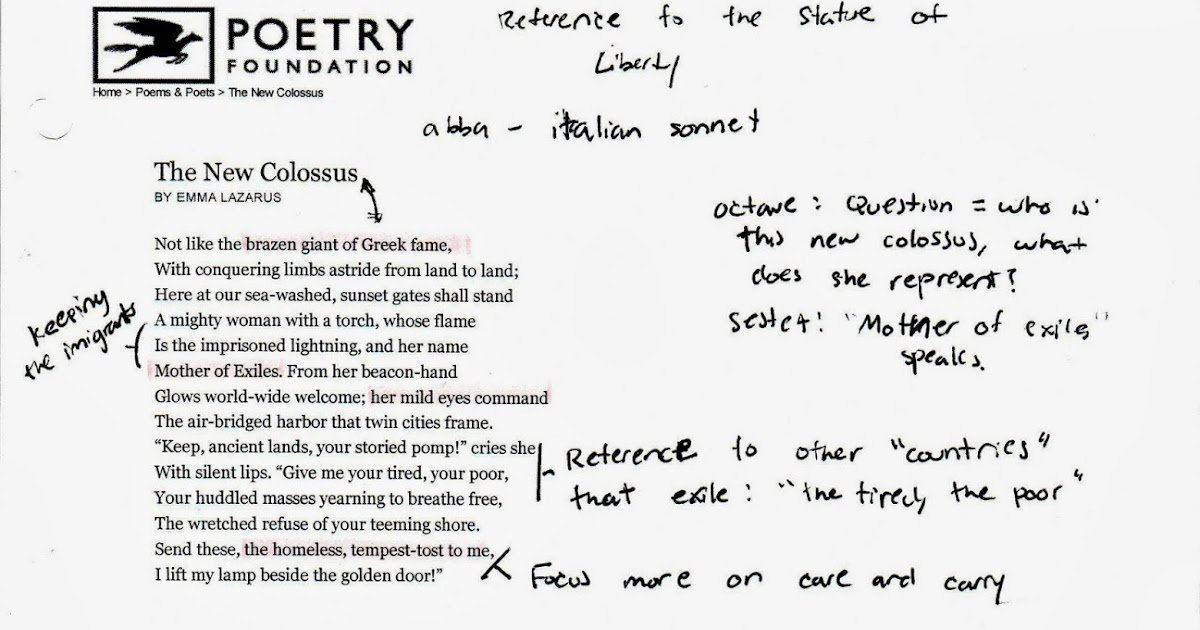 POETRY
FOUNDATION
Home > Poems & Poets > The New Colossus
Reference to the Statue of
Liberty
abba - italian sonnet
The New Colossus
BY EMMA LAZARUS
Not like the brazen giant of Greek fame,
With conquering limbs astride from land to land;
Here at our sea-washed, sunset gates shall stand
A mighty woman with a torch, whose flame
Is the imprisoned lightning, and her name
Mother of Exiles. From her beacon-hand
Glows world-wide welcome; her mild eyes command
The air-bridged harbor that twin cities frame.
“Keep, ancient lands, your storied pomp!” cries she
With silent lips. “Give me your tired, your poor,
Your huddled masses yearning to breathe free,
The wretched refuse of your teeming shore.
Send these, the homeless, tempest-tost to me,
I lift my lamp beside the golden door!”
keeping
the imigrants
octave : Question = who is
this new colossus, what
does she represent?
sestet: "Mother of exiles"
speaks.
Reference to other "countries"
that exile : "the tired, the poor"
Focus more on care and carry